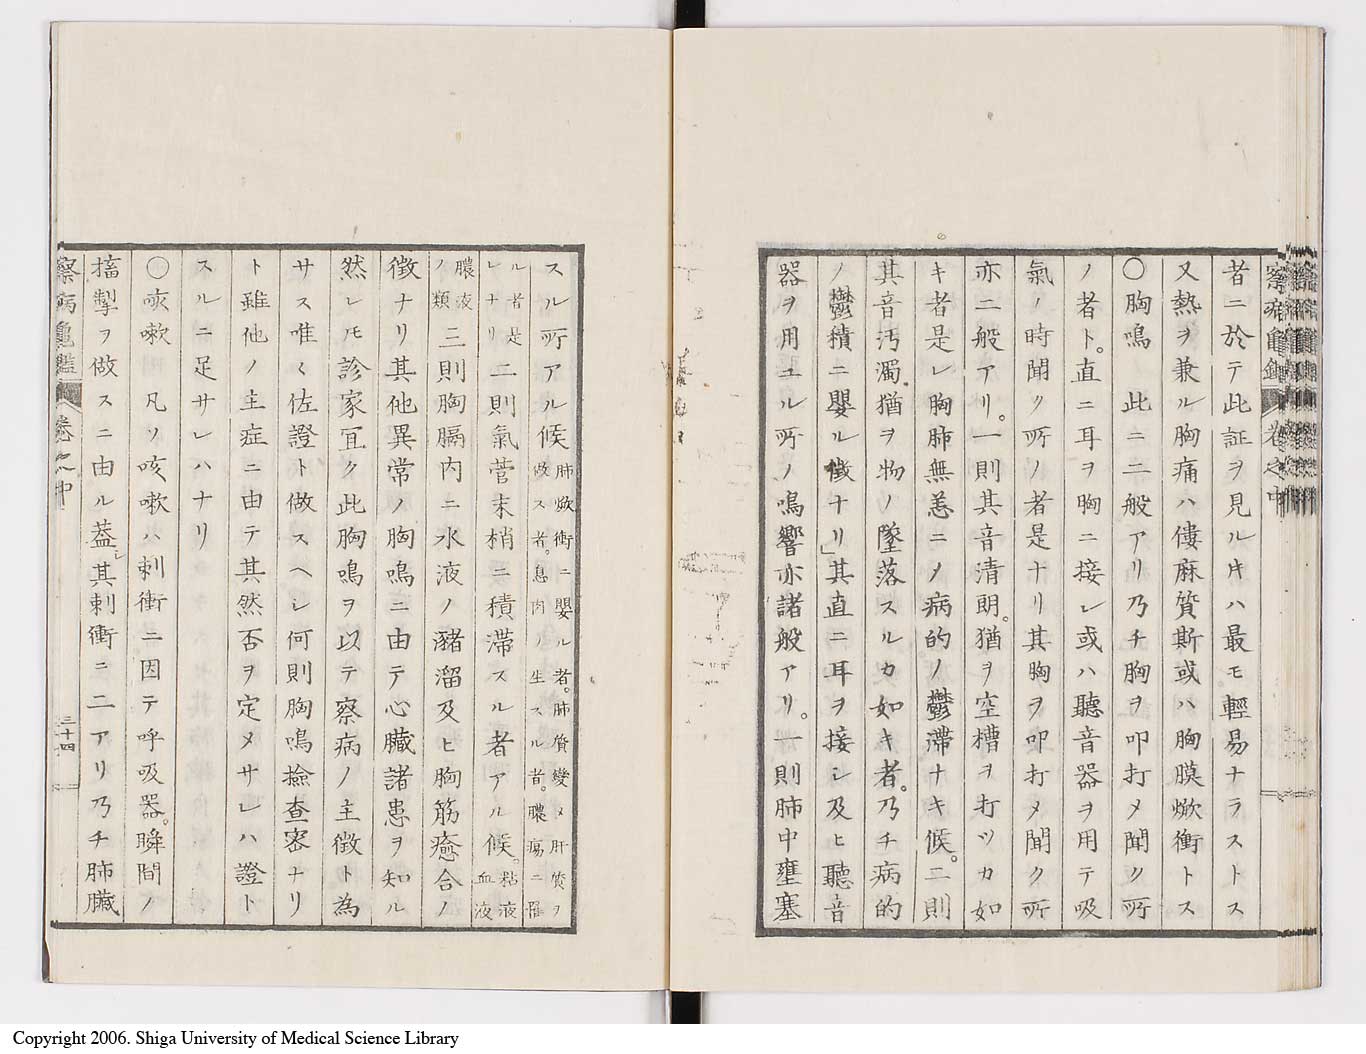 者ニ於テ此証ヲ見ル片ハ最モ輕易ナラストス
又熱ヲ兼ル胸痛ハ僂麻質斯或ハ胸膜焮衝トス
〇胸鳴 此ニ二般アリ乃チ胸ヲ叩打メ聞ク所
ノ者ト。直ニ耳ヲ胸ニ接レ或ハ聽音器ヲ用テ吸
氣ノ時聞ク所ノ者是ナリ其胸ヲ叩打メ聞ク所
亦二般アリ。一則其音清朗。猶ヲ空槽ヲ打ツカ如
キ者是レ胸肺無恙ニノ病的ノ鬱滯ナキ候。二則
其音汚濁。猶ヲ物ノ墜落スルカ如キ者。乃チ病的
ノ鬱積ニ嬰ル徴ナリ」其直ニ耳ヲ接シ及ヒ聽音
器ヲ用ユル所ノ鳴響亦諸般アリ。一則肺中壅塞
察病亀鑑 卷之中
スル所アル候 肺焮衝ニ嬰ル者。肺質變メ肝質ヲ
做ス者。息肉ノ生スル者。膿瘍ニ罹
ル者是
レナリ 二則氣管末梢ニ積滯スル者アル候。粘液
血液
膿液
ノ類 三則胸膈内ニ水液ノ瀦溜及ヒ胸筋癒合ノ
徴ナリ其他異常ノ胸鳴ニ由テ心臓諸患ヲ知ル
然レモ診家宜ク此胸鳴ヲ以テ察病ノ主徴ト為
サス唯〻佐證ト做スヘシ何則胸鳴撿査密ナリ
ト雖他ノ主症ニ由テ其然否ヲ定メサレハ證ト
スルニ足サレハナリ
〇咳嗽 凡ソ咳嗽ハ刺衝ニ因テ呼吸器。瞬間ノ
搐掣ヲ做スニ由ル蓋シ其刺衝ニ二アリ乃チ肺臓
察病亀鑑 卷之中 三十四
Copyright 2006. Shiga University of Medical Science Library